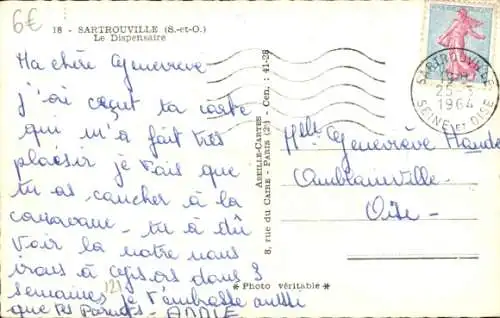 6€
18 - SARTROUVILLE (S.-et-O.)
Le Dispensaire
Ma chère Geneviève
j'ai reçut ta carte
qui m'a fait très
plaisir je vais que
tu as coucher à la
caravane - tu a dû
voir la notre nous
irons à dans 3
semaines je t'embrasse aussi
que tes Parents - ANNIE
121
ABEILLE-CARTES
8, rue du CAIRE - PARIS (2e) - Cen. : 41-28
* Photo véritable *
SARTROUVILLE
25-5
1964
SEINE ET OISE
Melle Geneviève
Amblainville
Oise -